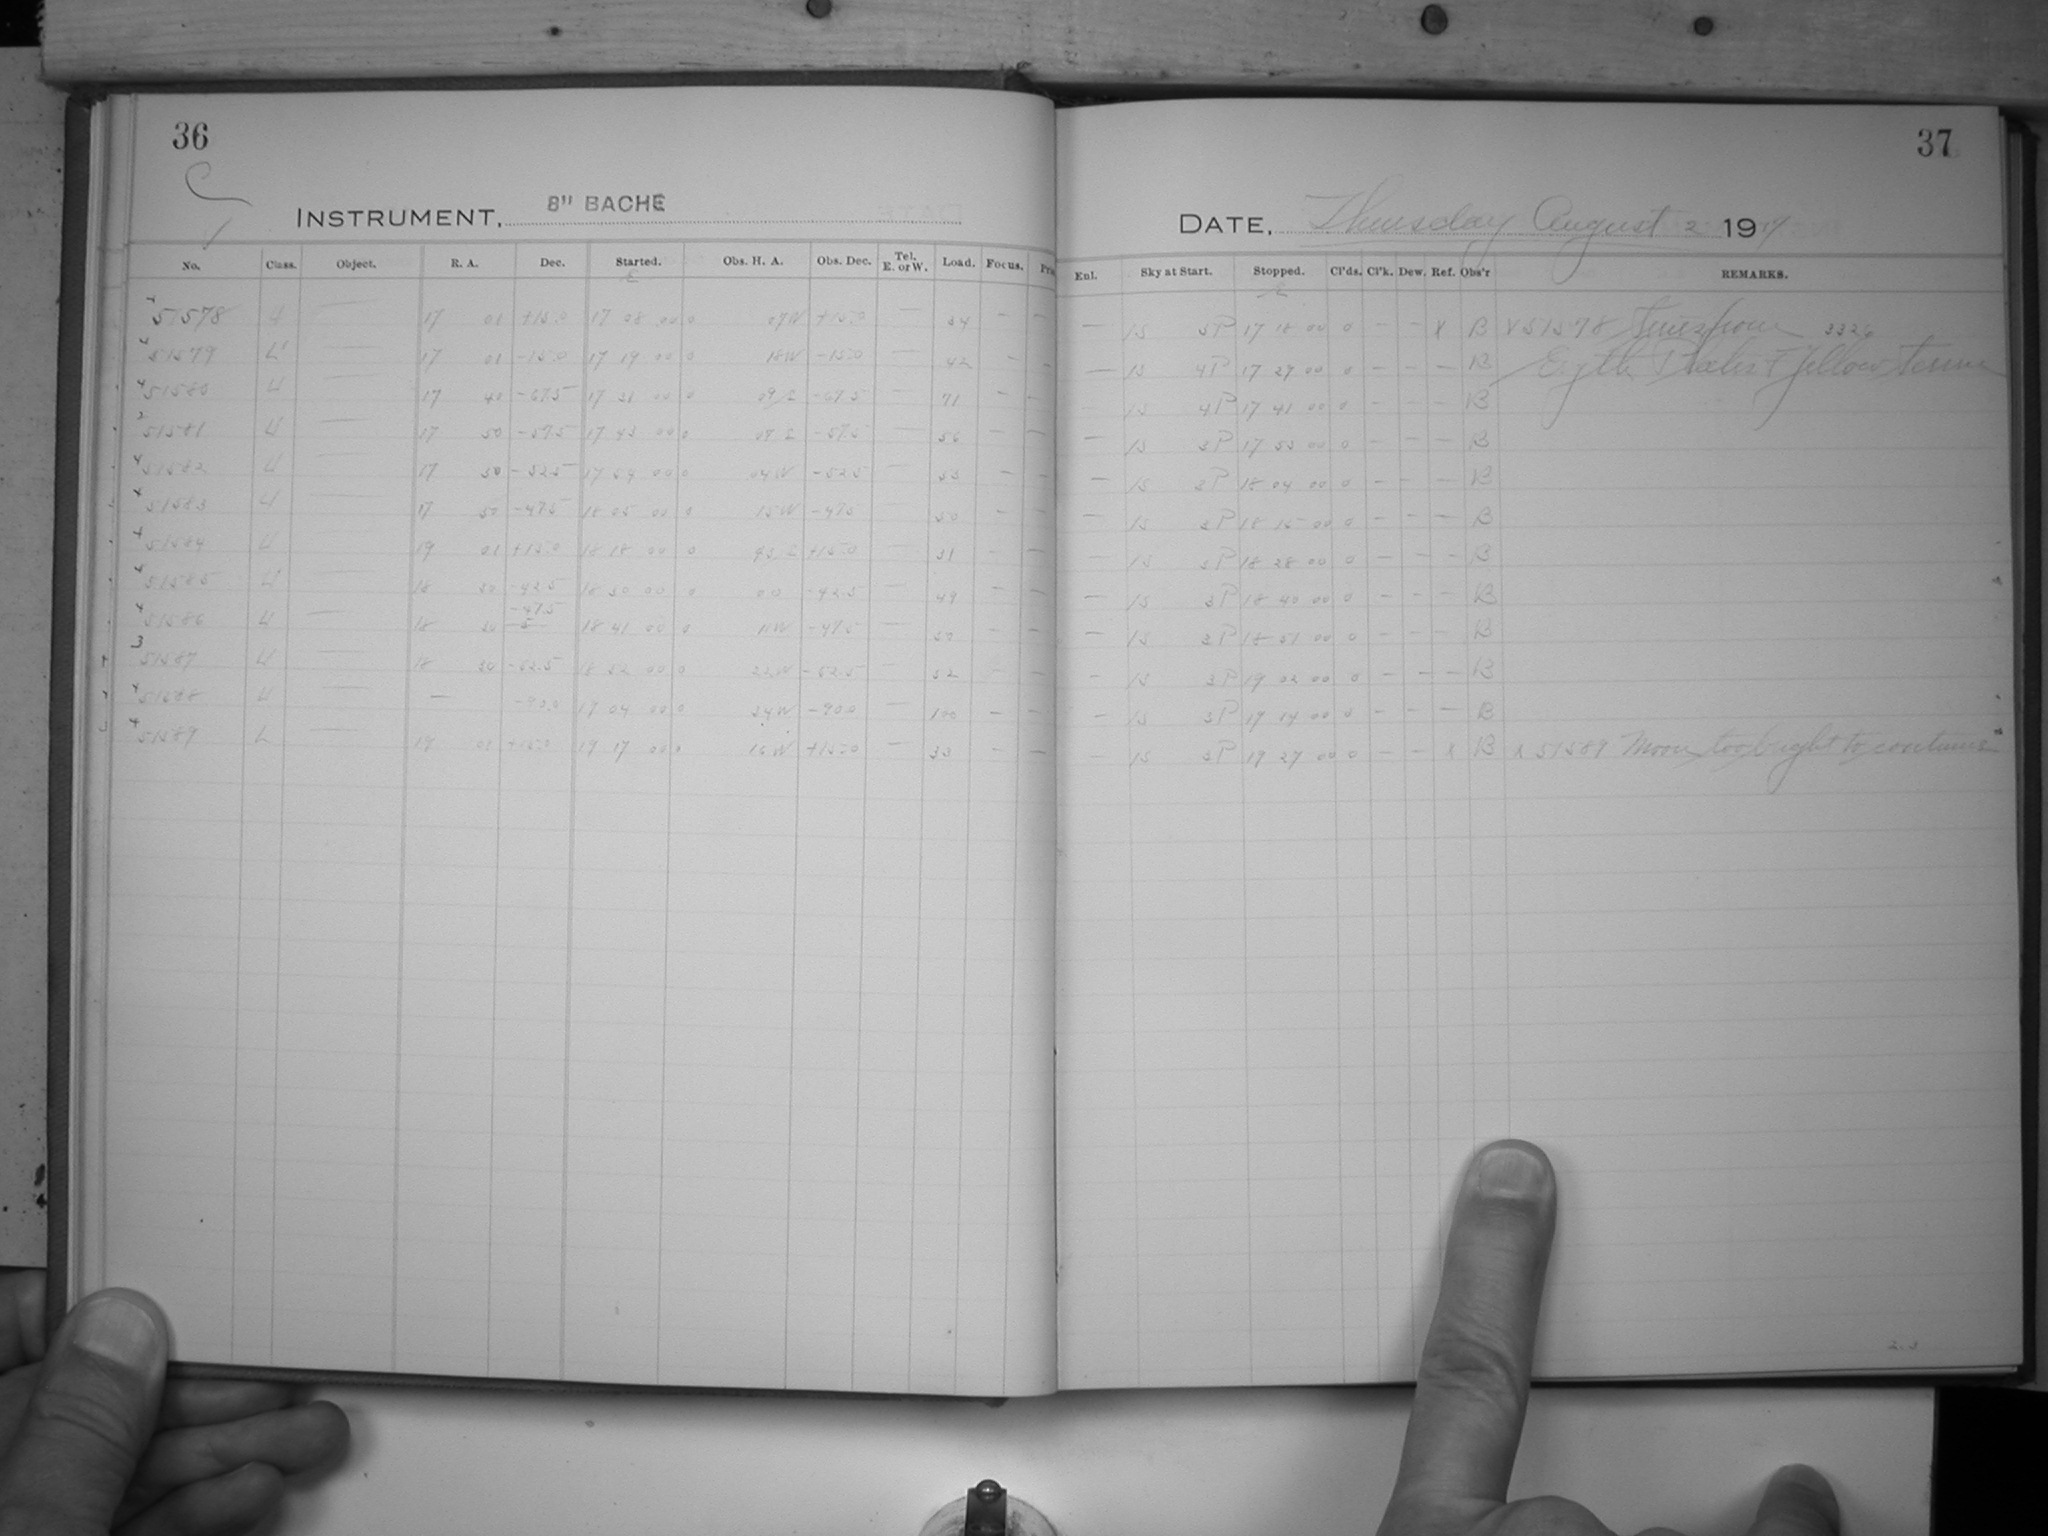 36
INSTRUMENT, 8" BACHE
No. Class. Object. R. A. Dec. Started. Obs. H. A. Obs. Dec. Tel. E. or W. Load. Focus.
51578 17 01 +15.0 17 08 00 0 07W +15.0 — 34 —
51579 17 01 -15.0 17 19 00 0 18W -15.0 — 42 —
51580 17 40 -67.5 17 31 00 0 -67.5 — 71 —
51581 17 50 -57.5 17 43 00 0 -57.5 — 56 —
51582 17 50 -52.5 17 54 00 0 04W -52.5 — 53 —
51583 17 50 -47.5 18 05 00 0 15W -47.5 — 50 —
51584 19 01 +15.0 18 18 00 0 +15.0 — 31 —
51585 18 30 -42.5 18 30 00 0 00 -42.5 — 49 —
51586 18 30 -47.5 18 41 00 0 11W -47.5 — 50 —
51587 18 30 -52.5 18 52 00 0 22W -52.5 — 52 —
51588 — -90.0 17 04 00 0 34W -90.0 — 100 —
51589 19 01 +15.0 19 17 00 0 16W +15.0 — 33 —
37
DATE, Thursday August 2 1917
Enl. Sky at Start. Stopped. Cl'ds. Cl'k. Dew. Ref. Obs'r REMARKS.
— 15 5P 17 18 00 0 – – X B X 51578 3326
— 15 4P 17 29 00 0 – – – B Yellow
15 4P 17 41 00 0 – – – B
— 15 3P 17 53 00 0 – – – B
— 15 3P 18 04 00 0 – – – B
— 15 3P 18 15 00 0 – – – B
— 15 3P 18 28 00 0 – – – B
— 15 3P 18 40 00 0 – – – B
— 15 3P 18 51 00 0 – – – B
– 15 3P 19 02 00 0 – – – B
– 15 3P 19 14 00 0 – – – B
– 15 3P 19 27 00 0 – – x B x 51589 Moon too bright to continue